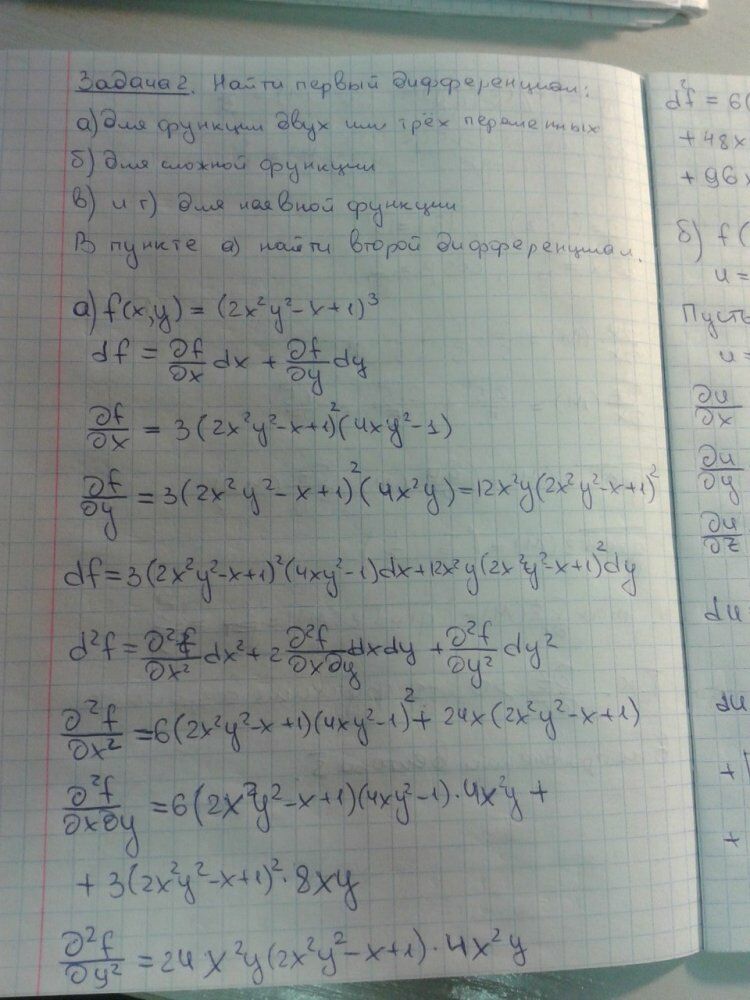 Задача 2. Найти первый дифференциал:
а) для функции двух или трёх переменных
б) для сложной функции
в) и г) для наявной функции
В пункте а) найти второй дифференциал.
а) f(x,y) = (2x²y² - x + 1)³
df = ∂f/∂x dx + ∂f/∂y dy
∂f/∂x = 3(2x²y² - x + 1)²(4xy² - 1)
∂f/∂y = 3(2x²y² - x + 1)²(4x²y) = 12x²y(2x²y² - x + 1)²
df = 3(2x²y² - x + 1)²(4xy² - 1)dx + 12x²y(2x²y² - x + 1)²dy
d²f = ∂²f/∂x² dx² + 2 ∂²f/∂x∂y dxdy + ∂²f/∂y² dy²
∂²f/∂x² = 6(2x²y² - x + 1)(4xy² - 1)² + 24x(2x²y² - x + 1)
∂²f/∂x∂y = 6(2x²y² - x + 1)(4xy² - 1) · 4x²y +
+ 3(2x²y² - x + 1)² · 8xy
∂²f/∂y² = 24x²y(2x²y² - x + 1) · 4x²y
d²f = 6(
+ 48x
+ 96x
б) f(
u =
Пусть
u =
∂u/∂x
∂u/∂y
∂u/∂z
du
du
+
+